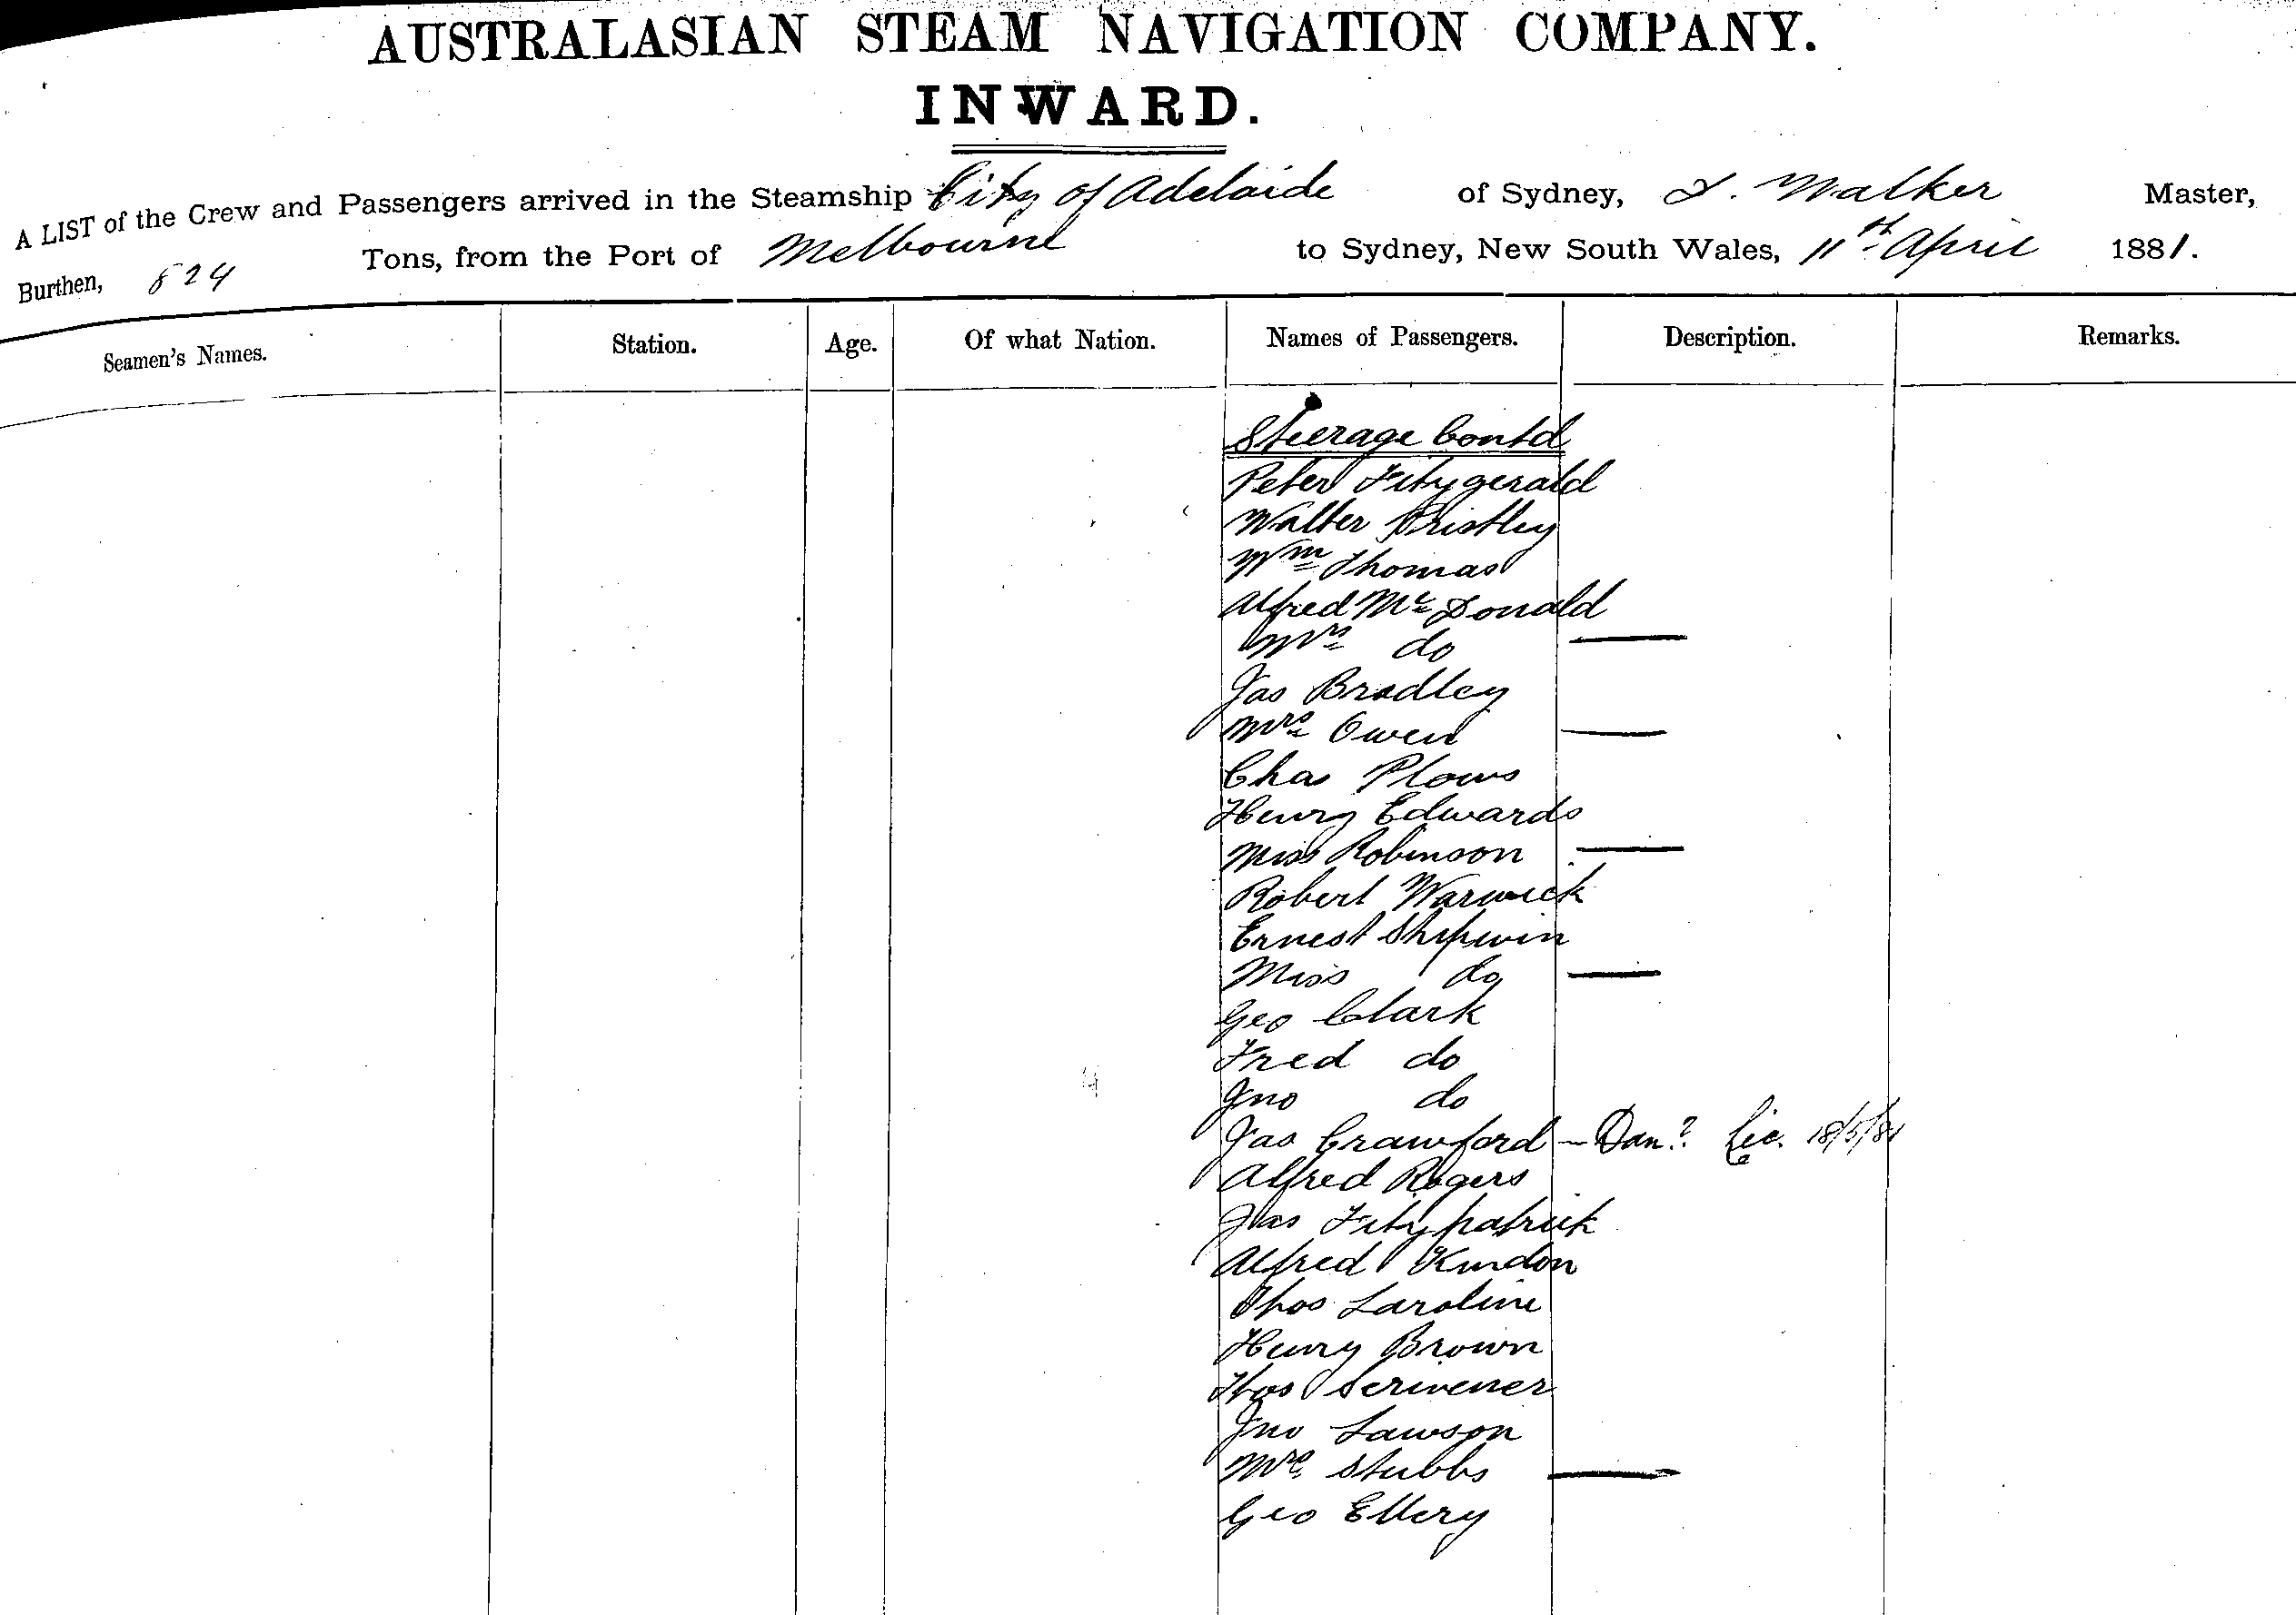 AUSTRALASIAN STEAM NAVIGATION COMPANY.
INWARD.
A LIST of the Crew and Passengers arrived in the Steamship City of Adelaide of Sydney, J. Walker Master,
Burthen, 824 Tons, from the Port of Melbourne to Sydney, New South Wales, 11th April 1881.
Seamen's Names. Station. Age. Of what Nation. Names of Passengers. Description. Remarks.
Steerage Contd
Peter Fitzgerald
Walter Pristley
Wm Thomas
Alfred McDonald
Mrs do
Jas Bradley
Mrs Owen
Chas Plows
Henry Edwards
Miss Robinson
Robert Warwick
Ernest Shipwin
Miss do
Geo Clark
Fred do
Jno do
Jas Crawford - Dan? Lic. 18/5/81
Alfred Rogers
Jas Fitzpatrick
Alfred Kundon
Thos Laroline
Henry Brown
Thos Scrivener
Jno Lawson
Mrs Stubbs
Geo Ellery